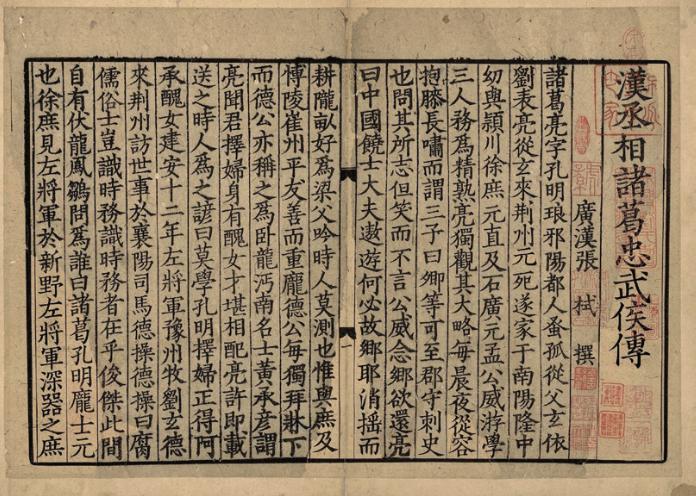 漢丞相諸葛忠武侯傳
廣漢張 栻 撰
諸葛亮字孔明琅邪陽都人蚤孤從父玄依
劉表亮從玄來荆州玄死遂家于南陽隆中
幼與潁川徐庶元直及石廣元孟公威游學
三人務爲精熟亮獨觀其大略每晨夜從容
抱膝長嘯而謂三子曰卿等可至郡守刺史
也問其所志但笑而不言公威念鄉欲還亮
曰中國饒士大夫遨遊何必故鄉耶消揺而
耕隴畝好爲梁父吟時人莫測也惟與庶及
博陵崔州平友善而重龐德公每獨拜牀下
而德公亦稱之爲卧龍沔南名士黃承彦謂
亮聞君擇婦身有醜女才堪相配亮許即載
送之時人爲之諺曰莫學孔明擇婦正得阿
承醜女建安十二年左將軍豫州牧劉玄德
來荆州訪世事於襄陽司馬德操德操曰腐
儒俗士豈識時務識時務者在乎俊傑此間
自有伏龍鳳鶵問爲誰曰諸葛孔明龐士元
也徐庶見左將軍於新野左將軍深器之庶